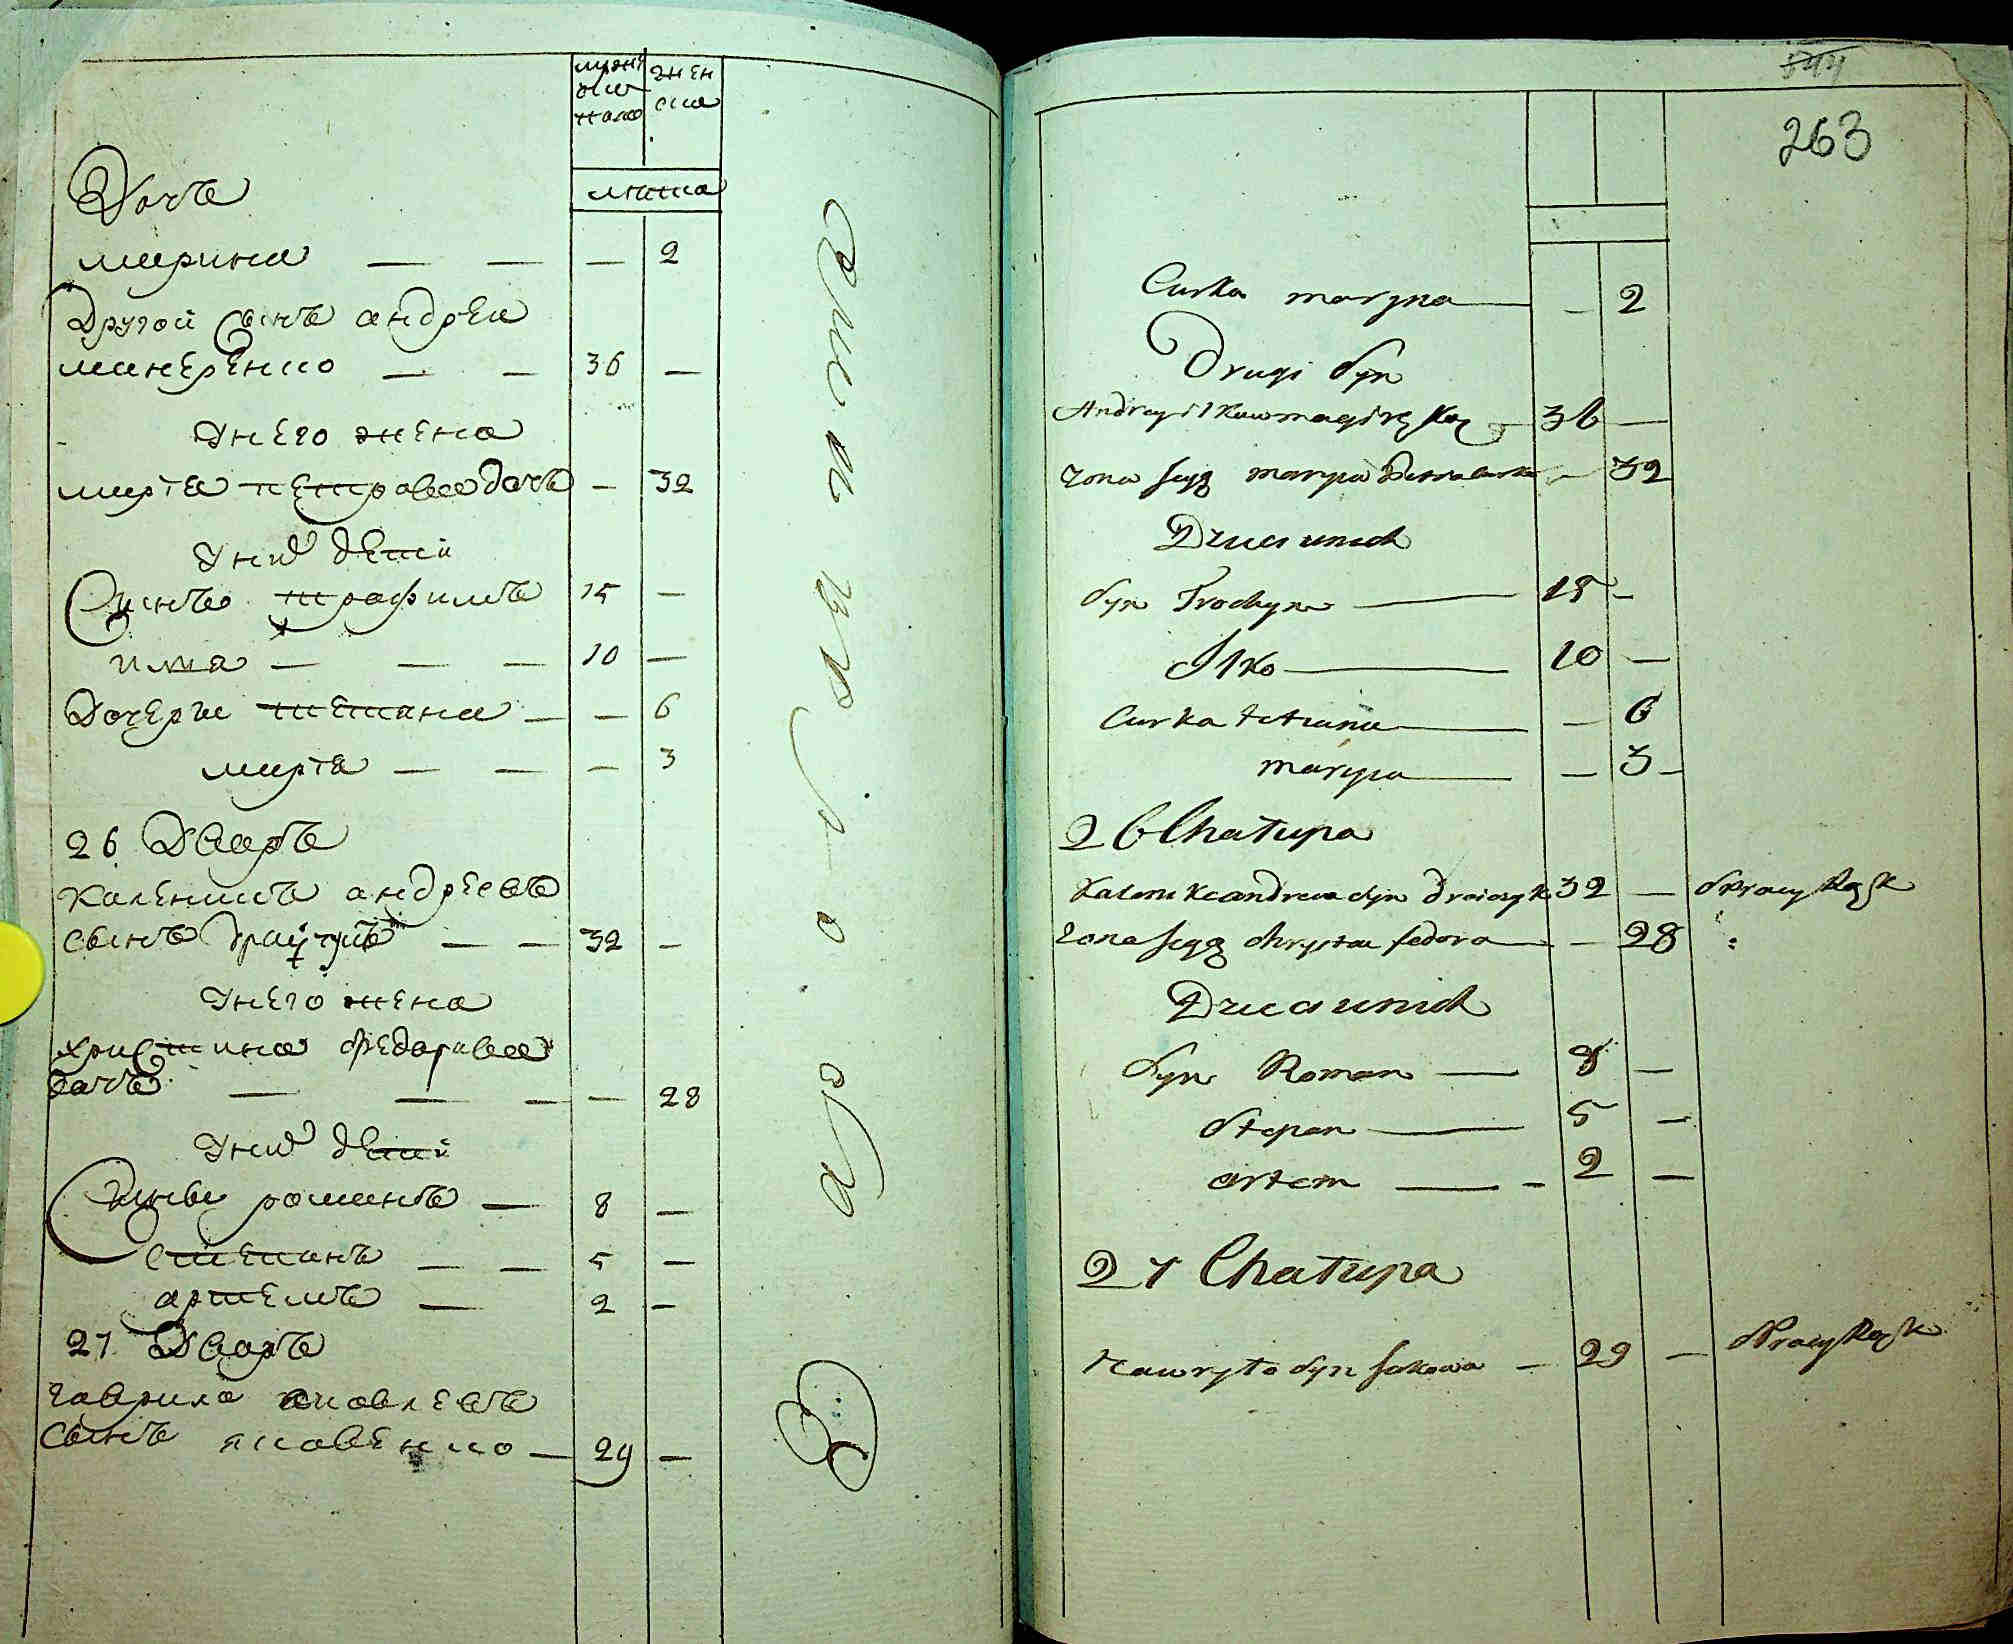 мужескаго
женска
лѣта
Дочь
марина — — — 2
Другой сынъ андреи
макеренко — — 36 —
У него жена
марѳа петрова дочь — 32
У них дети
Сынъ трафимъ 15 —
илка — — — 10 —
Дочери тетяна — — 6
марѳа — — — 3
26 Дворъ
Каленикъ андреевъ
сынъ — — 32 —
У него жена
христина федорова
дочь — — — — 28
У них дети
Сыны романъ — 8 —
степанъ — — 5 —
артемъ — 2 —
27 Дворъ
гаврило яковлевъ
сынъ яковенко — 29 —
263
Curka maryna — — 2
Drugi Syn
Andrey 36 —
żona jego marya — 32
Dzieci u nich
Syn Trochym — 15 —
Ilko — 10 —
Curka tetiana — — 6
marya — — 3 —
26 Chatupa
Kalenik andreia Syn 32 —
żona jego chrystia fedora — — 28
Dzieci u nich
Syn Roman — 8 —
Stepan — 5 —
artem — — 2 —
27 Chatupa
Hawryło Syn Jakowa — 29 —